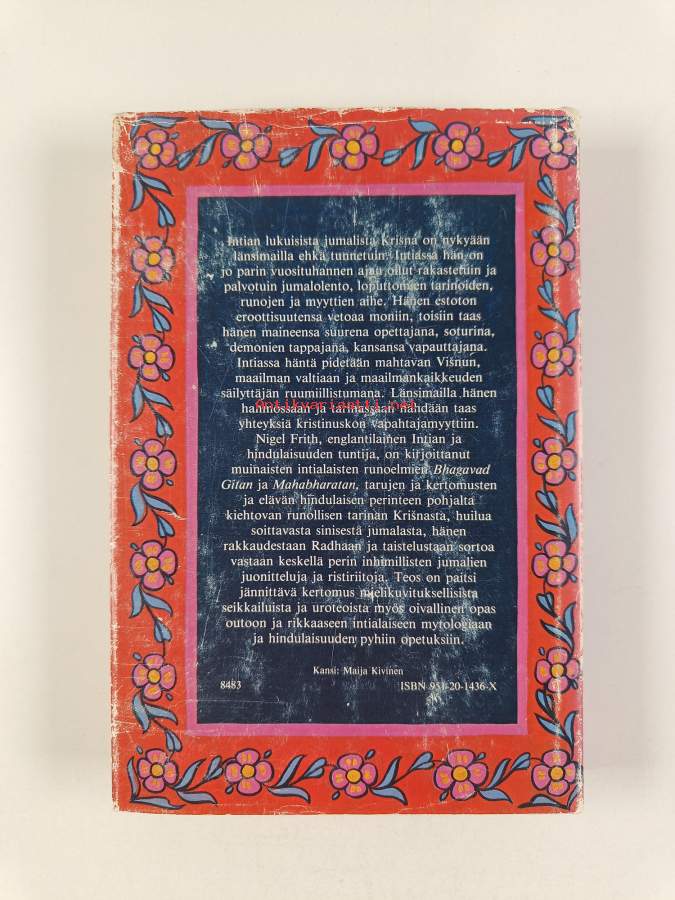 Intian lukuisista jumalista Krišna on nykyään
länsimailla ehkä tunnetuin. Intiassa hän on
jo parin vuosituhannen ajan ollut rakastetuin ja
palvotuin jumalolento, loputtomien tarinoiden,
runojen ja myyttien aihe. Hänen estoton
eroottisuutensa vetoaa moniin, toisiin taas
hänen maineensa suurena opettajana, soturina,
demonien tappajana, kansansa vapauttajana.
Intiassa häntä pidetään mahtavan Višnun,
maailman valtiaan ja maailmankaikkeuden
säilyttäjän ruumiillistumana. Länsimailla hänen
hahmossaan ja tarinassaan nähdään taas
Antikvariaatti.net
yhteyksiä kristinuskon vapahtajamyyttiin.
Nigel Frith, englantilainen Intian ja
hindulaisuuden tuntija, on kirjoittanut
muinaisten intialaisten runoelmien Bhagavad
Gītan ja Mahabharatan, tarujen ja kertomusten
ja elävän hindulaisen perinteen pohjalta
kiehtovan runollisen tarinan Krišnasta, huilua
soittavasta sinisestä jumalasta, hänen
rakkaudestaan Radhaan ja taistelustaan sortoa
vastaan keskellä perin inhimillisten jumalien
juonitteluja ja ristiriitoja. Teos on paitsi
jännittävä kertomus mielikuvituksellisista
seikkailuista ja urotöistä myös oivallinen opas
outoon ja rikkaaseen intialaiseen mytologiaan
ja hindulaisuuden pyhiin opetuksiin.
Kansi: Maija Kivinen
8483 ISBN 951-20-1436-X